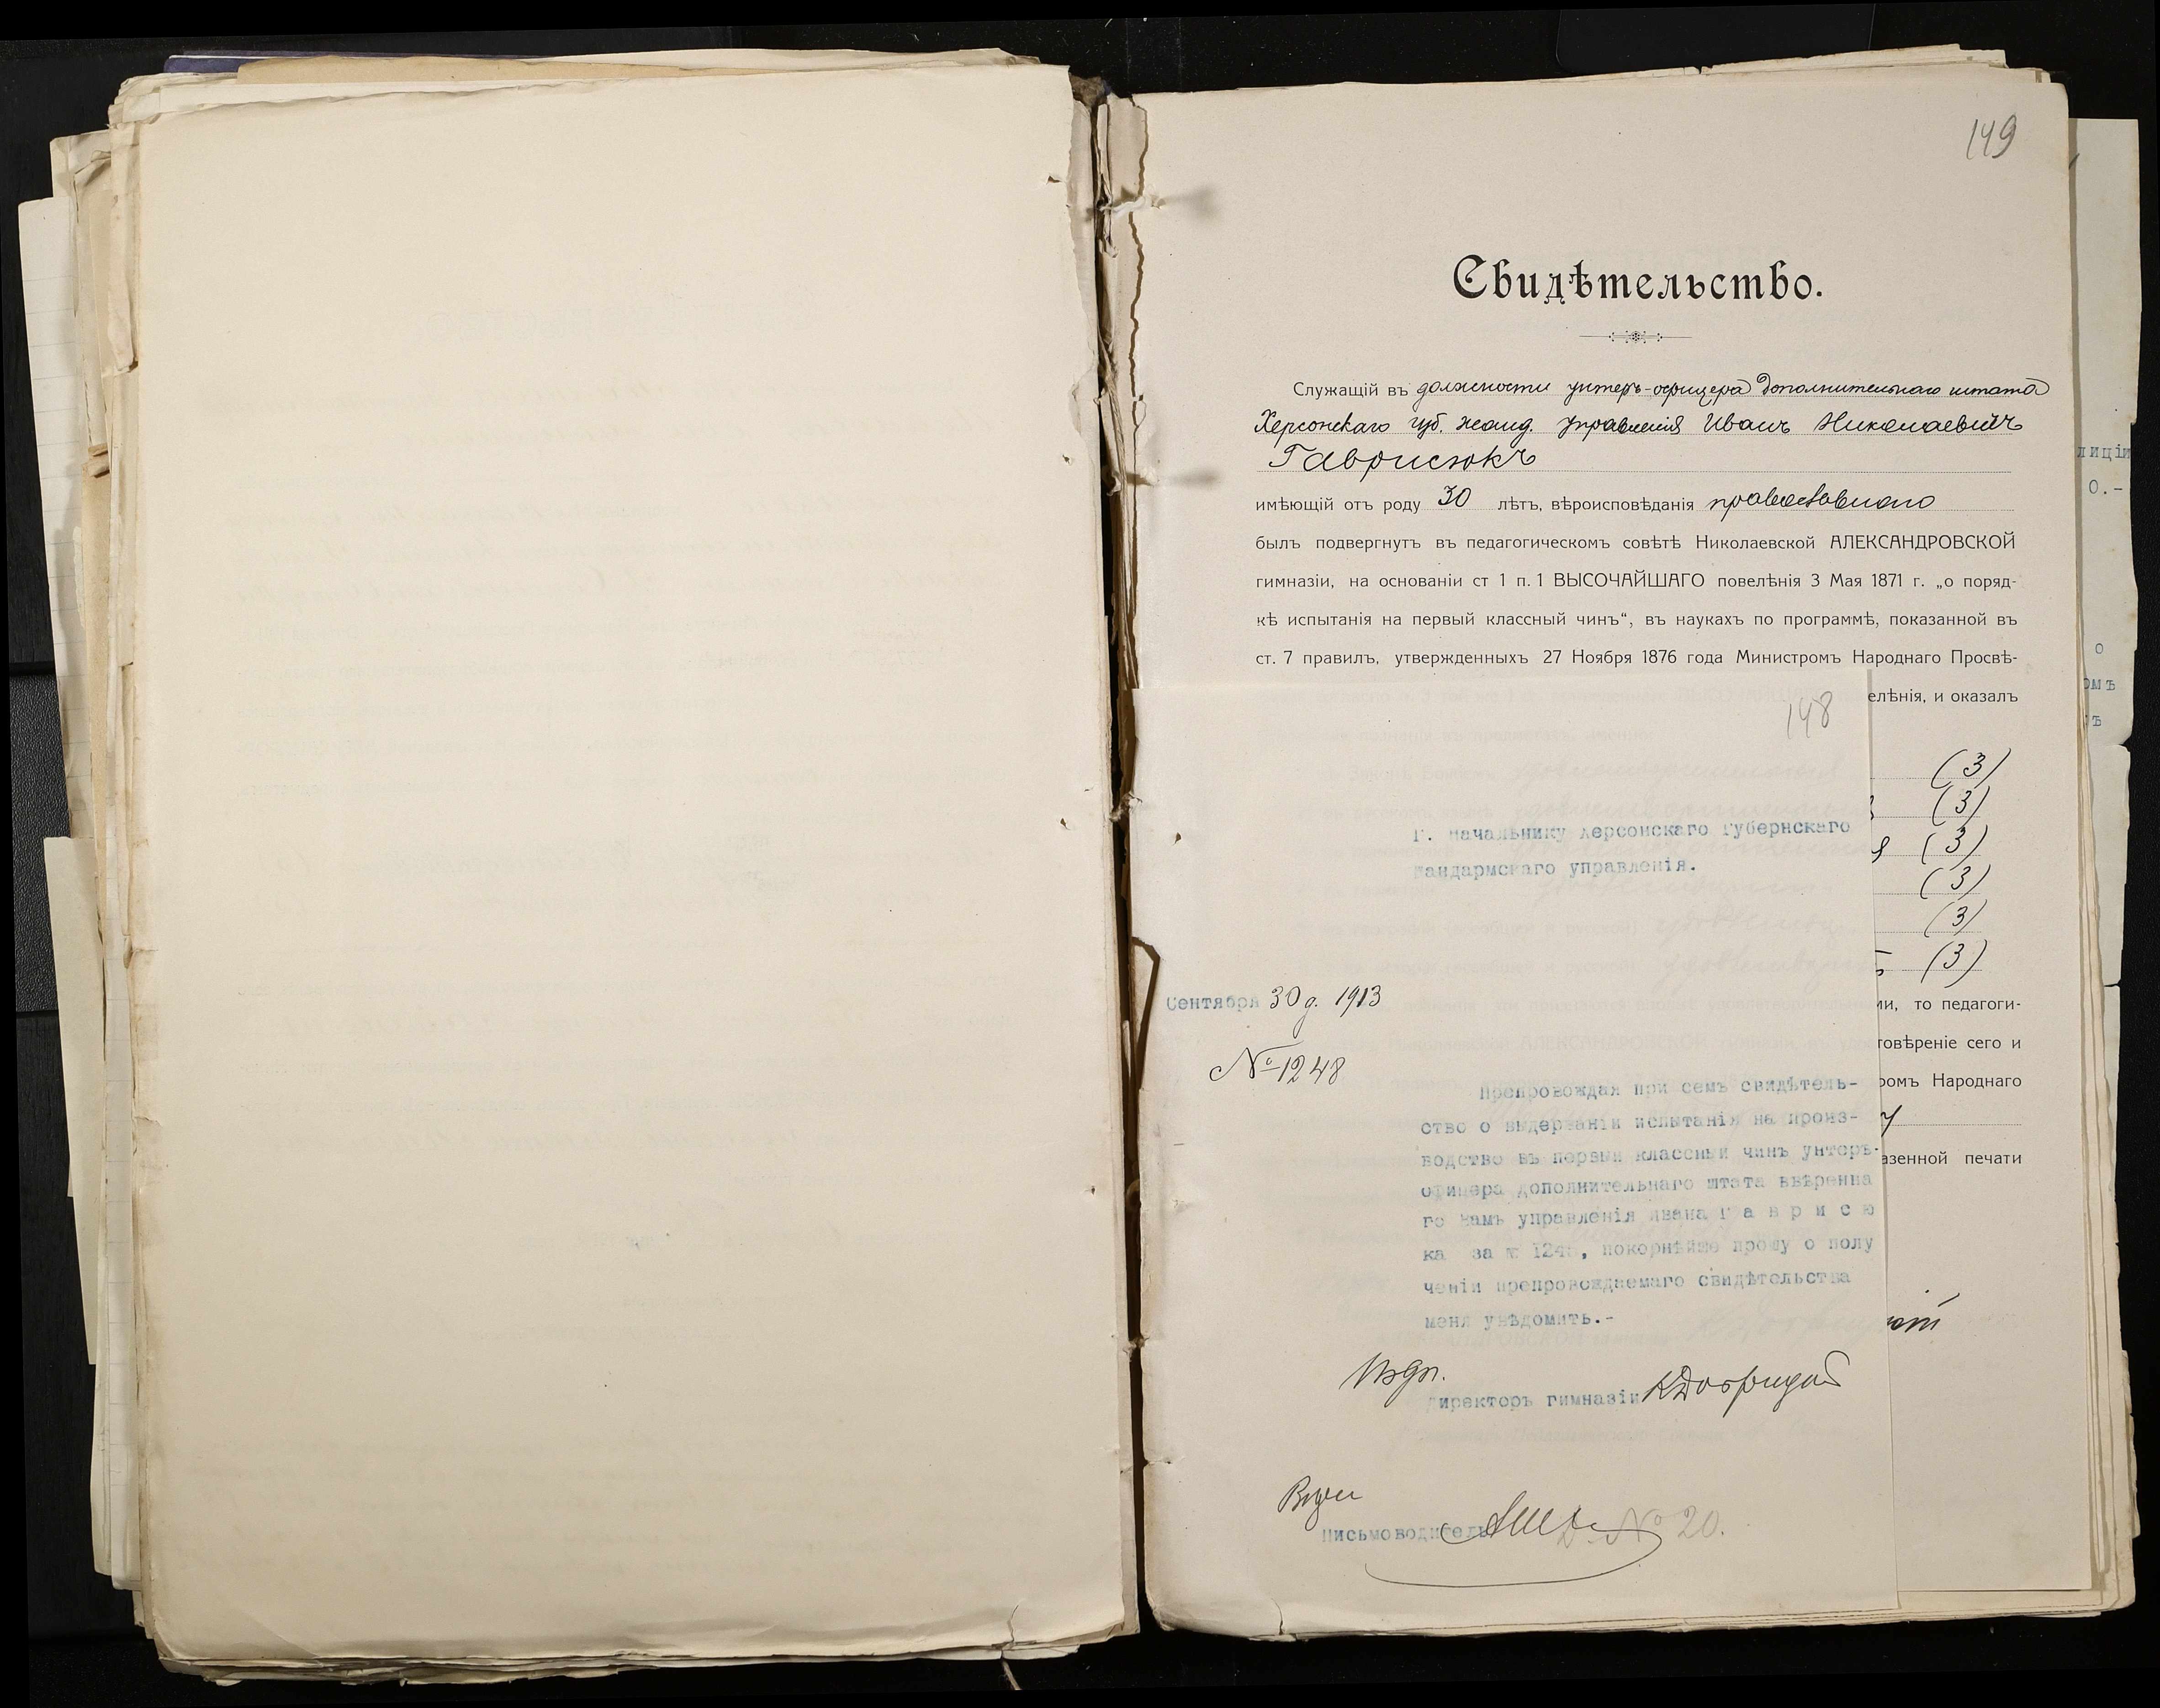 149
Свидѣтельство.
Служащій въ должности унтеръ-офицера дополнительнаго штата
Херсонскаго губ. жанд. управленія Иванъ Николаевичъ
Гаврисюкъ
имѣющій отъ роду 30 лѣтъ, вѣроисповѣданія православнаго
былъ подвергнутъ въ педагогическомъ совѣтѣ Николаевской АЛЕКСАНДРОВСКОЙ
гимназіи, на основаніи ст 1 п. 1 ВЫСОЧАЙШАГО повелѣнія 3 Мая 1871 г. „о поряд-
кѣ испытанія на первый классный чинъ“, въ наукахъ по программѣ, показанной въ
ст. 7 правилъ, утвержденныхъ 27 Ноября 1876 года Министромъ Народнаго Просвѣ-
елѣнія, и оказалъ
(3)
(3)
(3)
(3)
(3)
(3)
ми, то педагоги-
товѣреніе сего и
ромъ Народнаго
азенной печати
148
Г. Начальнику Херсонскаго Губернскаго
Жандармскаго управленія.
Сентября 30 д. 1913
№ 1248
Препровождая при семъ свидѣтель-
ство о выдержаніи испытанія на произ-
водство въ первый классный чинъ унтеръ-
офицера дополнительнаго штата ввѣренна
го Вамъ управленія Ивана Г а в р и с ю
ка за № 1245, покорнѣйше прошу о полу
ченіи препровождаемаго свидѣтельства
меня увѣдомить.-
Директоръ гимназіи
Письмоводитель
№ 20.
лиціи
0.-
о
омъ
ъ